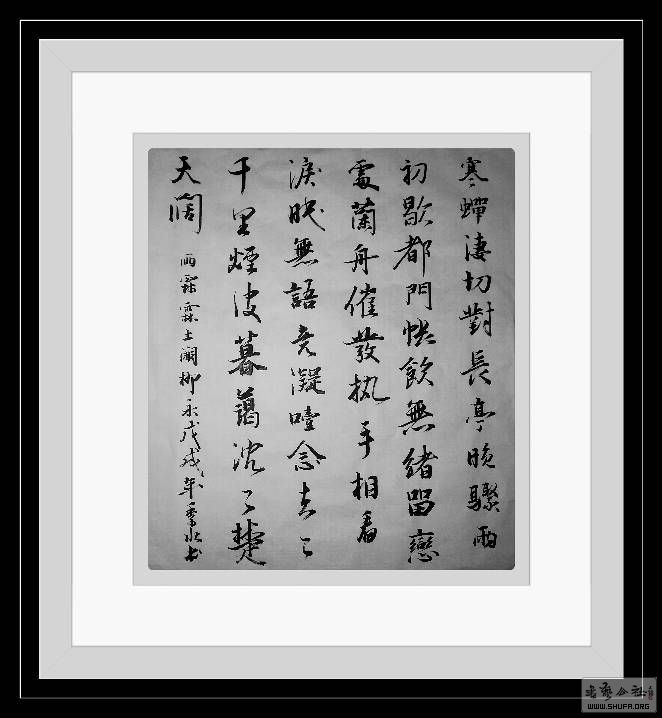 寒蟬淒切對長亭晚驟雨
初歇都門悵飲無緒留戀
處蘭舟催發执手相看
淚眼無語竟凝噎念去々
千里煙波暮藹沈々楚
天闊
雨霖霖上闋柳永戊戌年季水书
书艺公社
WWW.SHUFA.ORG